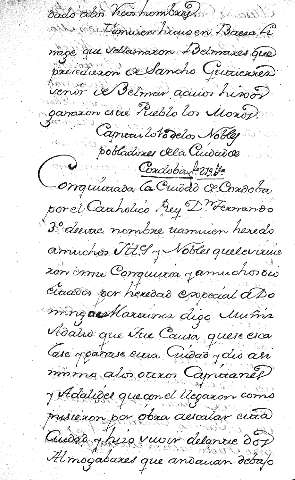 dado a tan Vien hombre
Tamvien huuo en Baeza li
nage que se llamaron Belmares que
prezedieron de Sancho Gutierrez
señor de Belmar a cuios hixos
ganaron este Pueblo los Moros
Capitulo 18 de los Nobles
pobladores de la Ciudad de
Cordoba
Conquistada la Ciudad de Cordoba
por el Catholico Rey Dn Fernando
3º de este nombre tamvien heredo
a muchos y Nobles que le sirvie
ron en su Conquista y a muchos dio
por heredad especial a Do
mingo Martines digo Muñiz
Adalid que fue Causa que se esca
lase y ganase esta Ciudad y dio asi
mismo a los otros Capitanes
y Adalides que con el llegaron como
pusieron por obra de escalar esta
Ciudad y hizo venir delante dos
Almogabares que andauan debajo